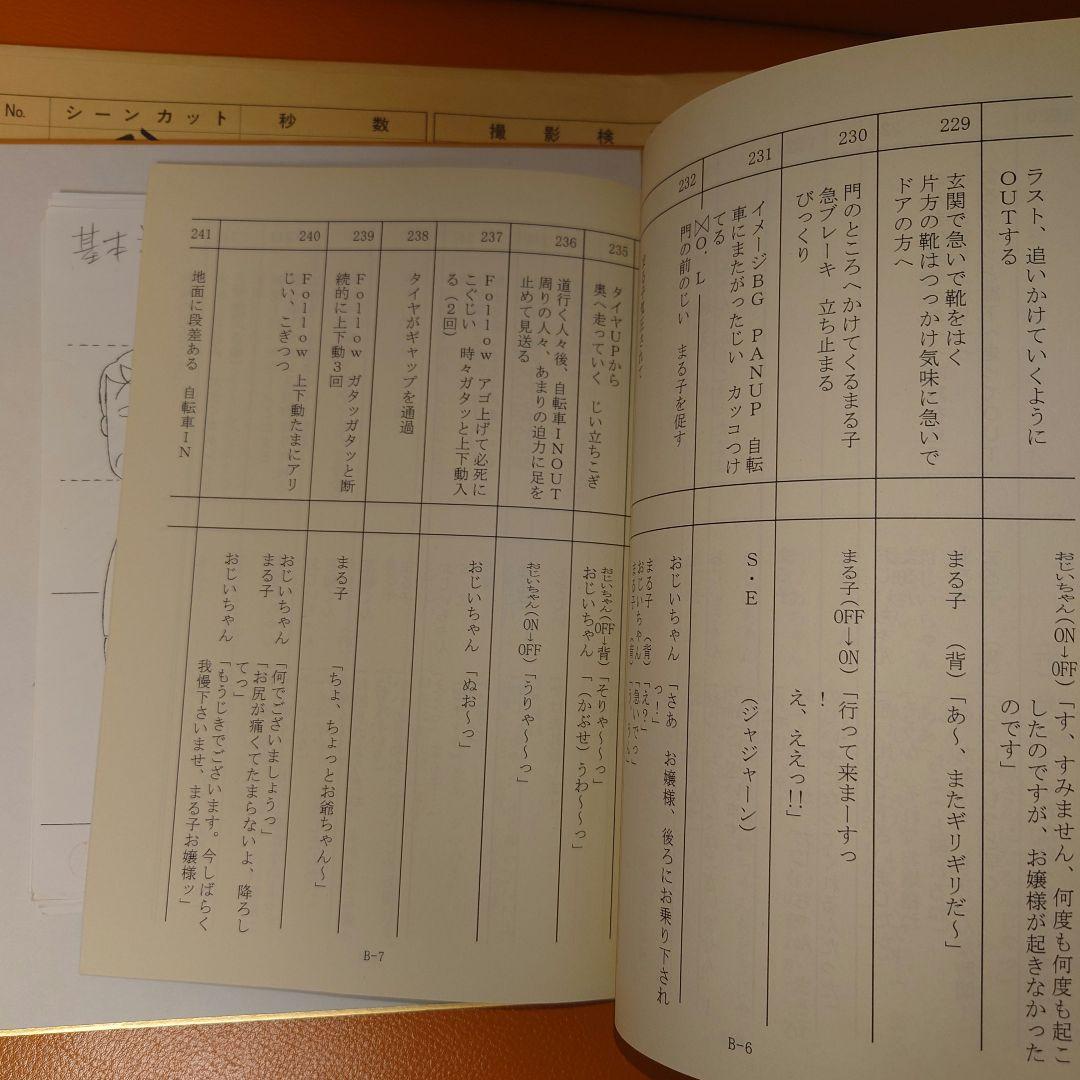 No.
シーンカット
秒数
撮影検
ラスト、追いかけていくように
OUTする
おじいちゃん(ON→OFF)「す、すみません、何度も何度も起こ
したのですが、お嬢様が起きなかった
のです」
229
玄関で急いで靴をはく
片方の靴はつっかけ気味に急いで
ドアの方へ
まる子 (背)「あ〜、またギリギリだ〜」
230
門のところへかけてくるまる子
急ブレーキ 立ち止まる
びっくり
まる子(OFF→ON)「行って来まーすっ
!
え、ええっ!!」
231
イメージBG PANUP 自転
車にまたがったじい カッコつけ
てる
O.L
S・E (ジャジャーン)
232
門の前のじい まる子を促す
おじいちゃん 「さあ お嬢様、後ろにお乗り下され
っー」
まる子 (背)「え?」
おじいちゃん 「急いでっ」
まる子 (背)
B-6
235
タイヤUPから
奥へ走っていく じい立ちこぎ
おじいちゃん(OFF→背)「そりゃ〜〜っ」
おじいちゃん 「(かぶせ)うわ〜〜っ」
236
道行く人々後、自転車INOUT
周りの人々、あまりの迫力に足を
止めて見送る
おじいちゃん(ON→OFF)「うりゃ〜〜っ」
237
Follow アゴ上げて必死に
こぐじい 時々ガタッと上下動入
る(2回)
おじいちゃん 「ぬお〜っ」
238
タイヤがギャップを通過
239
Follow ガタッガタッと断
続的に上下動3回
まる子 「ちょ、ちょっとお爺ちゃん〜」
240
Follow 上下動たまにアリ
じい、こぎつつ
おじいちゃん 「何でございましょうっ」
まる子 「お尻が痛くてたまらないよ、降ろし
てっ」
おじいちゃん 「もうじきでございます。今しばらく
我慢下さいませ、まる子お嬢様ッ」
241
地面に段差ある 自転車IN
B-7